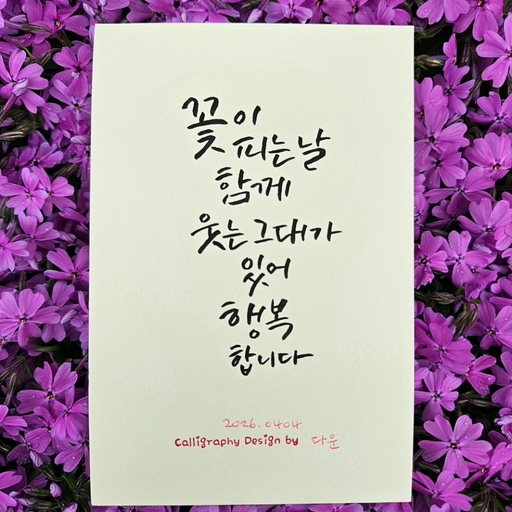 꽃이
피는날
함께
웃는 그대가
있어
행복
합니다
2026.0404
Calligraphy Design by 다운